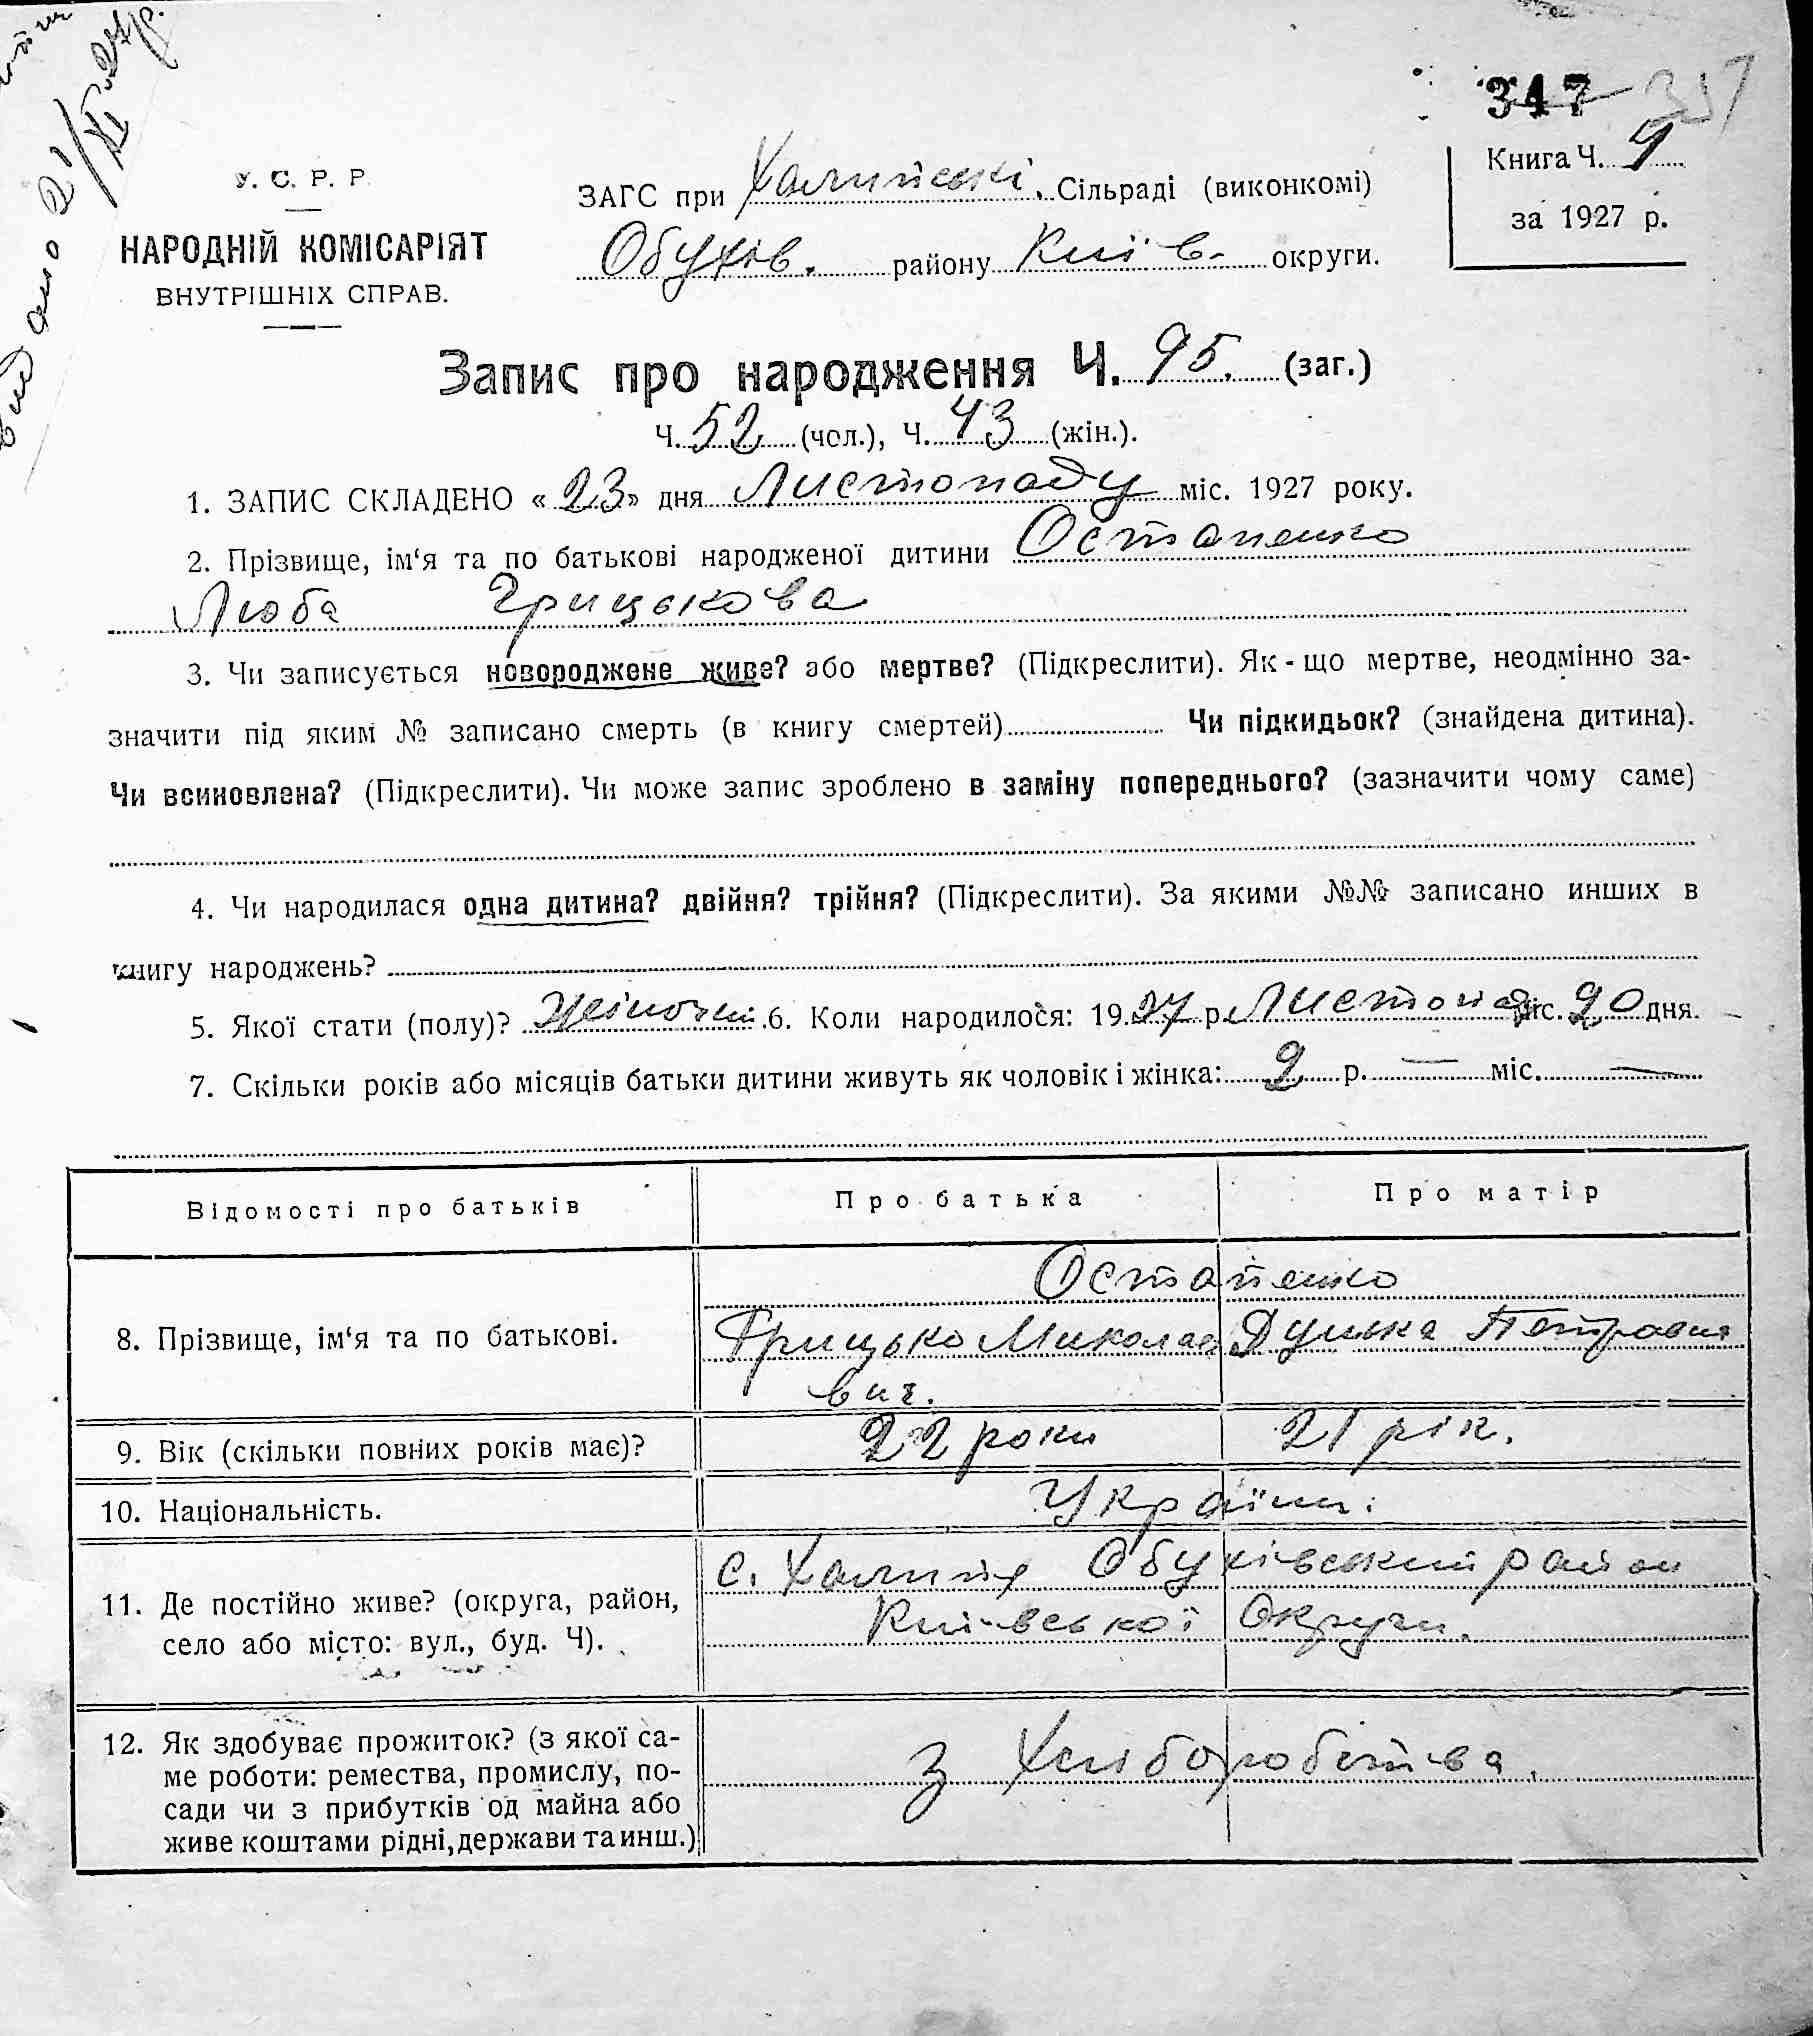 347 351
У. С. Р. Р.
НАРОДНІЙ КОМІСАРІЯТ
ВНУТРІШНІХ СПРАВ.
ЗАГС при Халипській Сільраді (виконкомі)
Обухів. району Київ. округи.
Книга Ч.
за 1927 р.
Запис про народження Ч. 95. (заг.)
Ч. 52 (чол.), Ч. 43 (жін.).
1. ЗАПИС СКЛАДЕНО «23» дня Листопаду міс. 1927 року.
2. Прізвище, ім‘я та по батькові народженої дитини Остапенко
Люба Грицькова
3. Чи записується новороджене живе? або мертве? (Підкреслити). Як-що мертве, неодмінно за-
значити під яким № записано смерть (в книгу смертей) Чи підкидьок? (знайдена дитина).
Чи всиновлена? (Підкреслити). Чи може запис зроблено в заміну попереднього? (зазначити чому саме)
4. Чи народилася одна дитина? двійня? трійня? (Підкреслити). За якими №№ записано инших в
книгу народжень?
5. Якої стати (полу)? Жіночий 6. Коли народилося: 1927 р. Листопад міс. 20 дня.
7. Скільки років або місяців батьки дитини живуть як чоловік і жінка: 2 р. — міс. —
Відомості про батьків Про батька Про матір
Остапенко
8. Прізвище, ім‘я та по батькові. Грицько Миколає Дунька Петровна
вич.
9. Вік (скільки повних років має)? 22 роки 21 рік.
10. Національність. Україн.
с. Халипя Обухівський район
11. Де постійно живе? (округа, район, Київської Округи.
село або місто: вул., буд. Ч).
12. Як здобуває прожиток? (з якої са-
ме роботи: ремества, промислу, по- з Хліборобства.
сади чи з прибутків од майна або
живе коштами рідні, держави та инш.)